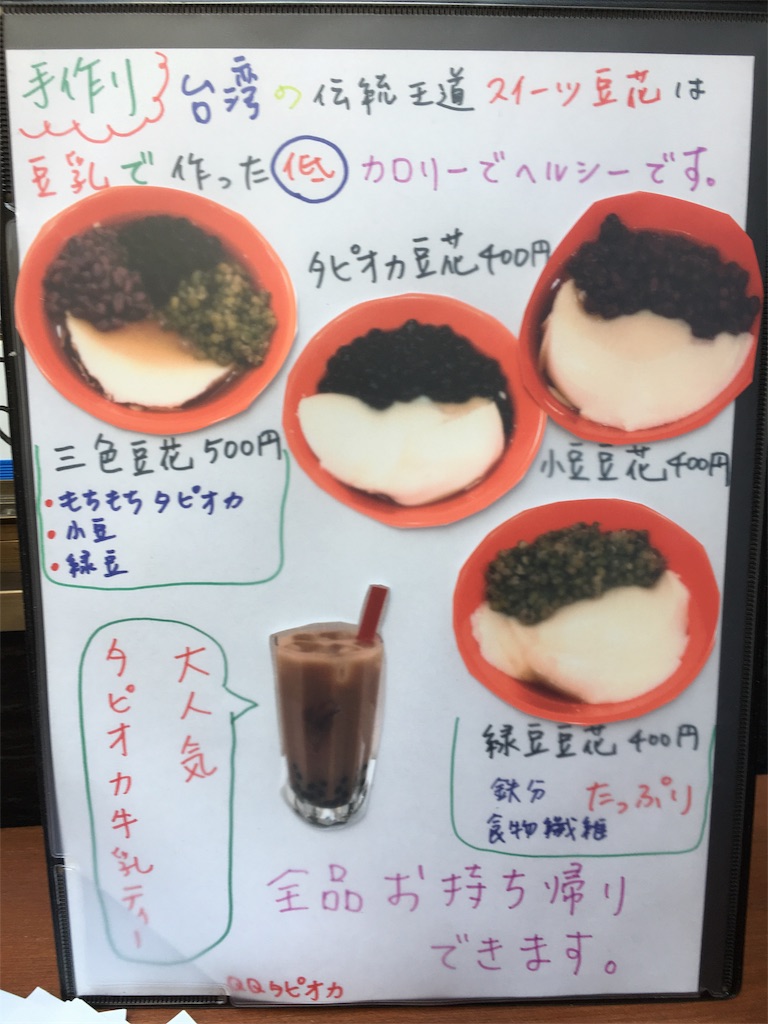 手作り 台湾の伝統王道スイーツ豆花は
豆乳で作った低カロリーでヘルシーです。
タピオカ豆花400円
三色豆花 500円
・もちもちタピオカ
・小豆
・緑豆
小豆豆花400円
緑豆豆花 400円
鉄分
食物繊維
たっぷり
大人気
タピオカ牛乳ティー
全品お持ち帰り
できます。
QQタピオカ